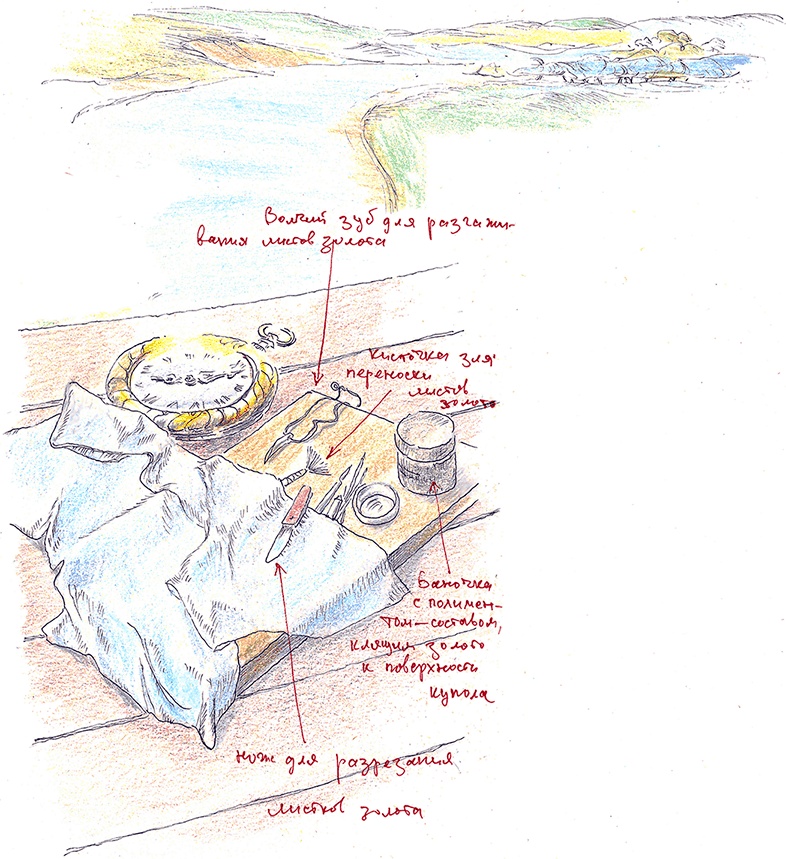 Волчий зуб для разглажи-
вания листов золота
кисточка для
переноски
листов
золота
баночка
с полимен-
том-составом,
клящим золото
к поверхности
купола
нож для разрезания
листков золота